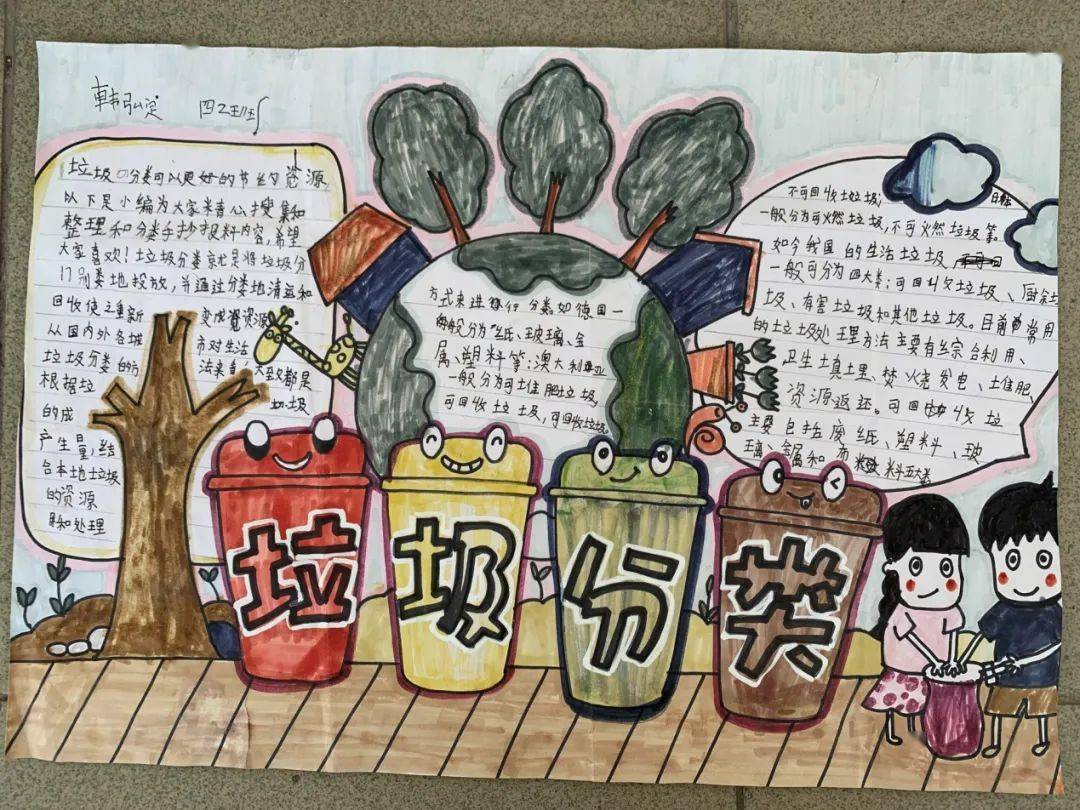 韩弘定 四2班
垃圾分类可以更好的节约资源
以下是小编为大家精心搜集和
整理和分类手抄报料内容,希望
大家喜欢!垃圾分类就是将垃圾分
门别类地投放,并通过分类地清运和
回收使之重新 变成资源
从国内外各城 市对生活
垃圾分类的方 法来看 大致都是
根据垃 圾
的成
产生量,结
合本地垃圾
的资源
和处理
方式来进行分类如德国一
般分为纸、玻璃、金
属、塑料等;澳大利亚
一般分为可堆肥垃圾,
可回收垃圾,可回收垃圾
不可回收垃圾;日韩
一般分为可燃垃圾,不可燃垃圾等。
如今我国的生活垃圾,
一般可分为四大类:可回收垃圾、厨余垃
圾、有害垃圾和其他垃圾。目前常用
的垃圾处理方法主要有综合利用、
卫生填埋、焚烧发电、堆肥、
资源返还。可回收垃
主要包括废纸、塑料、玻
璃、金属和布料五大类
垃圾分类